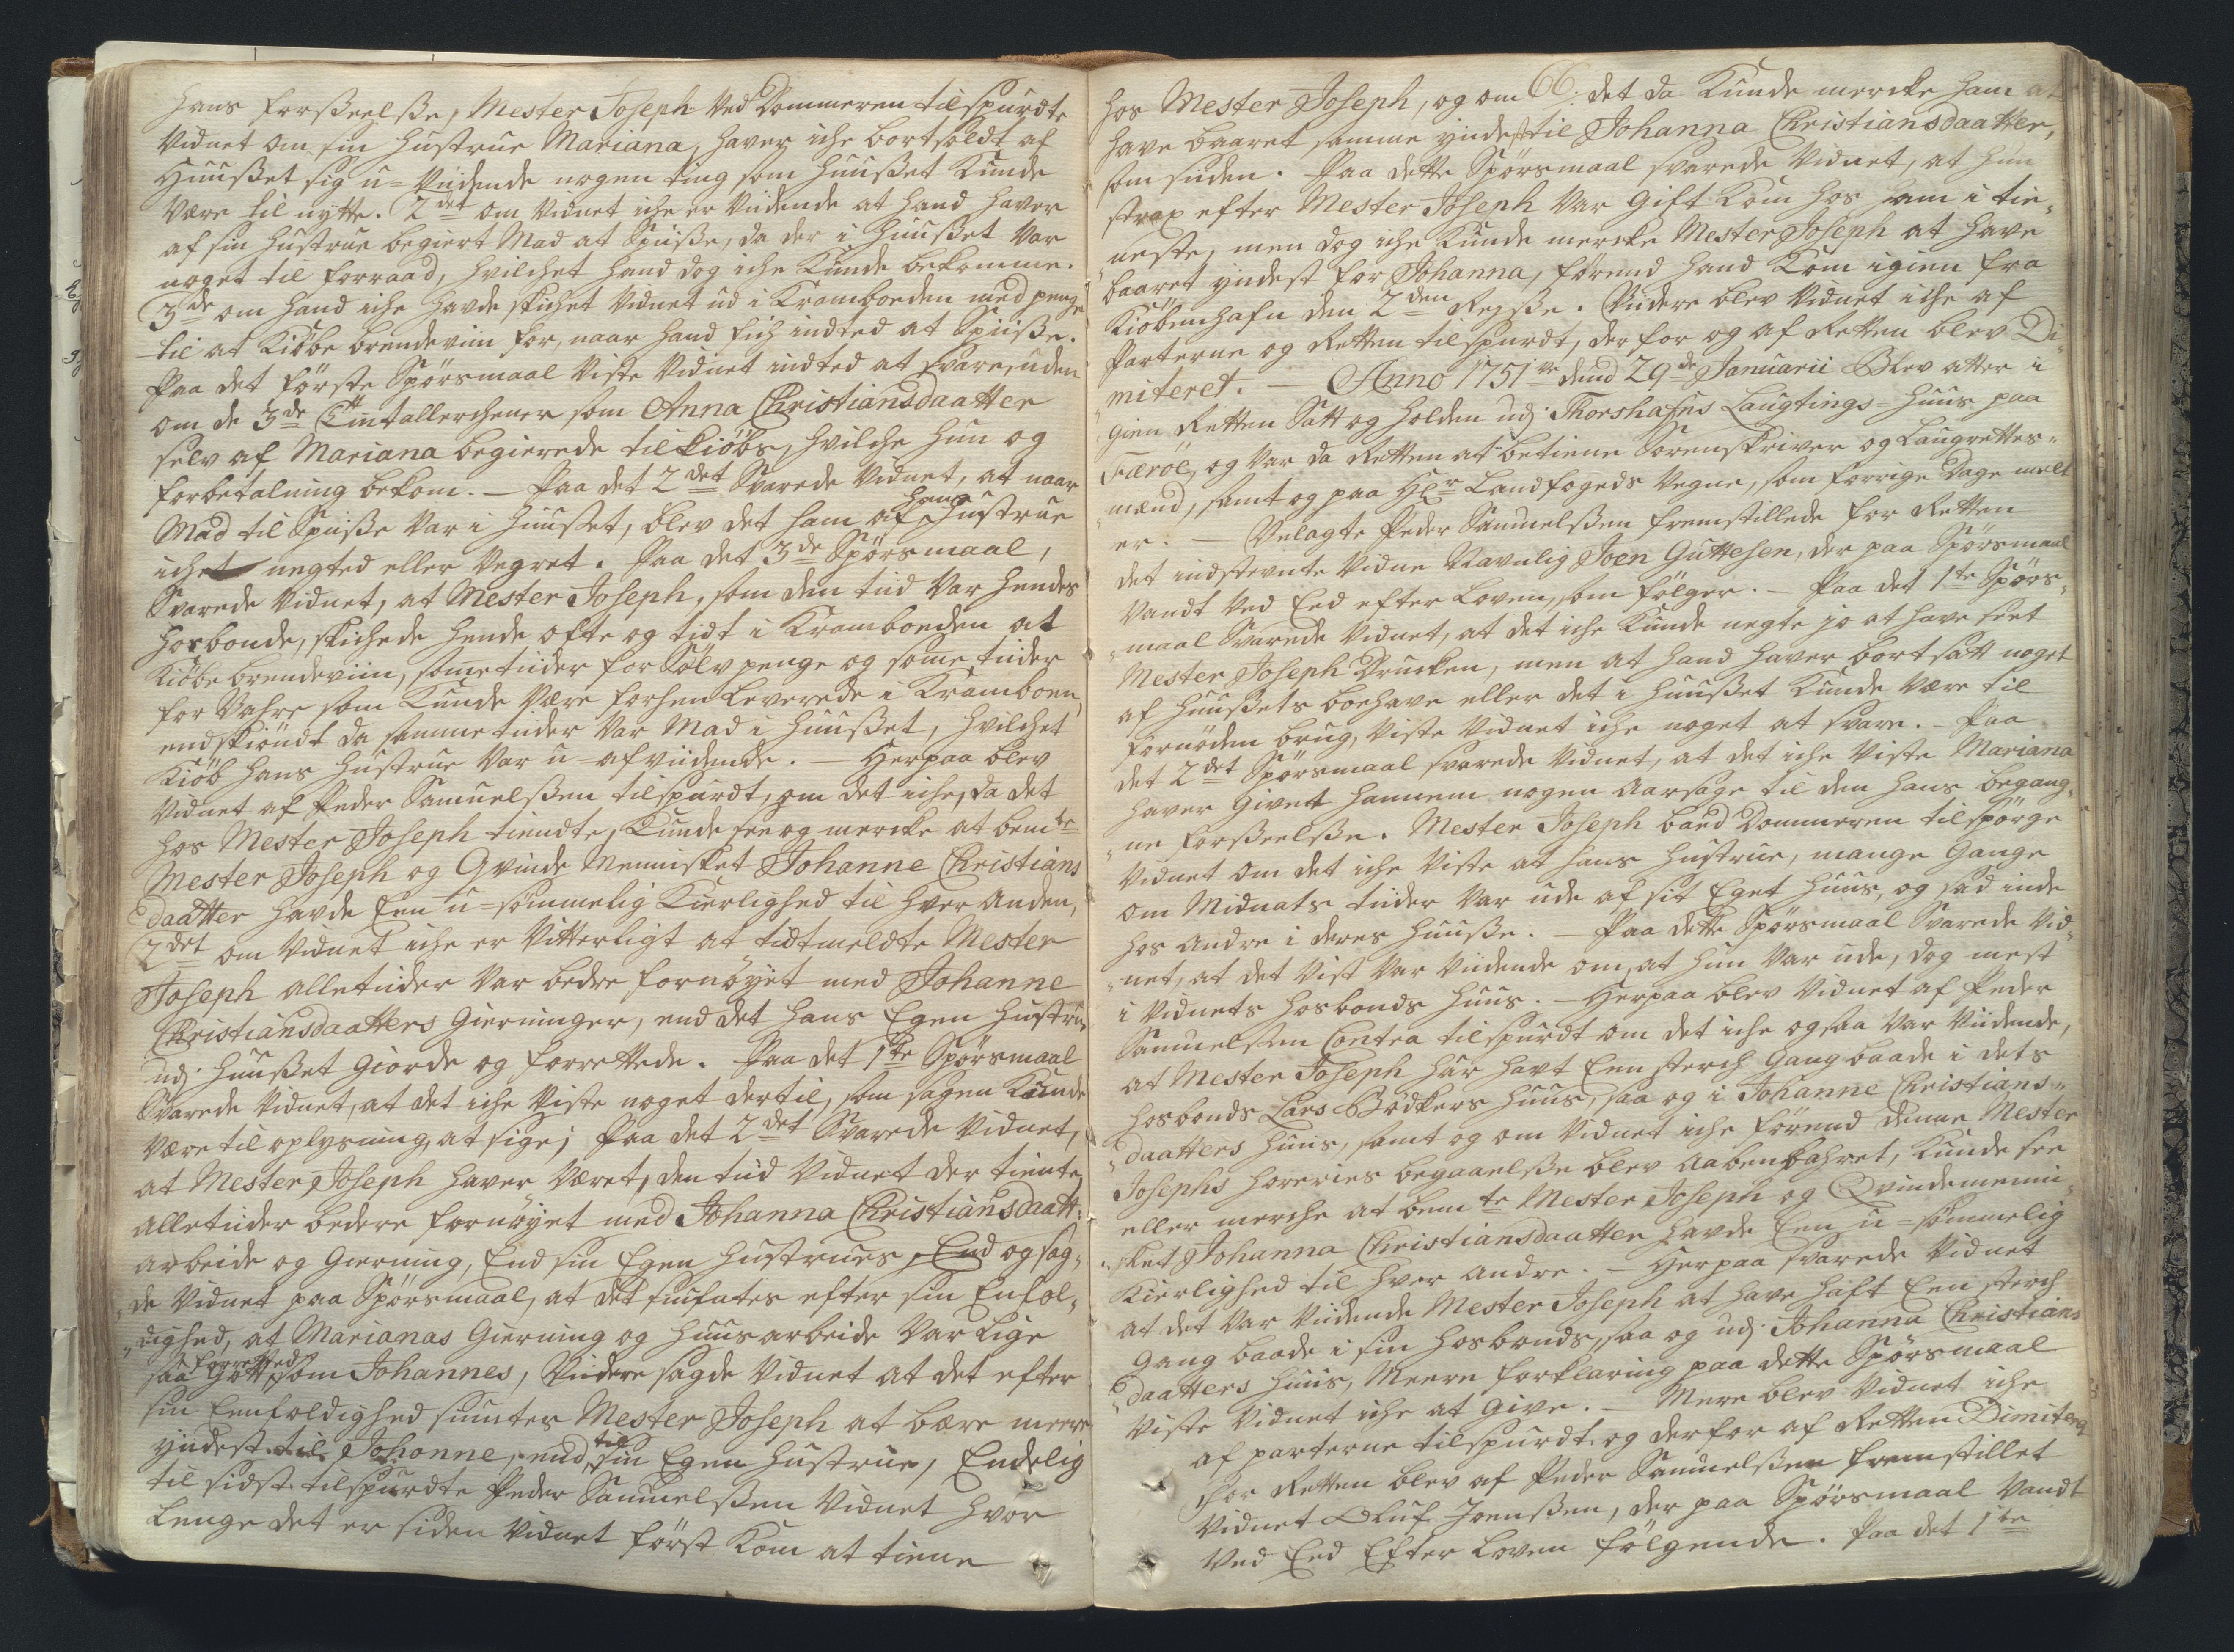 hans forsseelsse, Mester Joseph ved Dommeren tilspurdte
Vidnet om sin hustrue Mariana, haver iche bortsoldt af
Huusset sig u-vidende nogen ting som Huusset kunde
være til nytte. 2det om Vidnet iche er vidende at hand haver
af sin hustrue begiert Mad at Spiisse, da der i Huusset var
noget til forraad, hvilchet hand dog iche kunde bekomme.
3de om hand iche havde skichet Vidnet ud i Kramboeden med penge
til at kiöbe brendeviin for, naar hand fich indted at Spiisse.
Paa det förste Spörsmaal viste Vidnet indted at svare, uden
om de 3de Tintallerchener som Anna Christiansdaatter
selv af Mariana begierede til kiöbs, hvilche hun og
forbetalning bekom. – Paa det 2det Svarede Vidnet, at naar
Mad til Spiisse var i Huuset, blev det ham af hans Hustrue
iche negted eller vegret. Paa det 3de Spörsmaal,
Svarede Vidnet, at Mester Joseph, som den tid var hendes
Hosbonde, skichede hende ofte og tidt i Kramboeden at
kiöbe brendeviin, sometider for Sölvpenge og sometider
for Vahre som kunde være forhen leverede i Kramboen,
endskiöndt da sammetider var Mad i Huusset, hvilchet
kiöb hans hustrue var u-afvidende. – Herpaa blev
Vidnet af Peder Samuelssen tilspurdt, om det iche, da det
hos Mester Joseph tiendte, kunde see og mercke at bemte
Mester Joseph og Qvinde Mennisket Johanne Christians
daatter havde Een u-sömmelig kierlighed til hver anden,
2det om Vidnet iche er vitterligt at tidtmeldte Mester
Joseph alletider var bedre fornöyet med Johanne
Christiansdaatters gierninger, end det hans Egen hustrue
udj Huusset giorde og forrettede. Paa det 1te Spörsmaal
Svarede Vidnet, at det iche viste noget dertil, som sagen kunde
være til oplysning, at sige; Paa det 2det Svarede Vidnet,
at Mester Joseph haver været, den tid Vidnet der tiente,
alletider bedere fornöyet med Johanna Christiansdaatt:
arbeide og gierning, End sin Egen hustrues, End og sag-
de Vidnet paa Spörsmaal, at det siufntes efter sin Enfol-
dighed, at Marianas gierning og huusarbeide var lige
saa gott forrettede som Johannes, Videre sagde Vidnet at det efter
sin Eenfoldighed siunter Mester Joseph at bære meere
yndest til Johonne, end til sin Egen hustrue, Endelig
til sidst tilspurdte Peder Samuelssen Vidnet hvor
lenge det er siden Vidnet först kom at tiene
66.
hos Mester Joseph, og om det da kunde mercke ham at
have baaret samme yndest til Johanna Christiansdaatter,
som siden. Paa dette Spörsmaal svarede Vidnet, at hun
strax efter Mester Joseph var gift kom hos ham i tie-
neste, men dog iche kunde mercke Mester Joseph at have
baaret yndest for Johanna, förend hand kom igien fra
Kiöbenhafn den 2den Reysse. Videre blev Vidnet iche af
Parterne og Retten tilspurdt, derfor og af Retten blev Di-
miteret. – Anno 1751ve dend 29de Januarii Blev atter i
gien Retten Satt og holden udj Thorshafns Laugtings-Huus paa
Færöe, og var da Retten at betiene Sorenskriver og Laugrettes-
mænd, samt og paa Hr Landfogeds Vegne, som forrige Dage melt
er. – Velagte Peder Samuelssen fremstillede for Retten
det indstevnte Vidne Navnlig Joen Guttesen, der paa Spörsmaal
vandt ved Eed efter Loven, som fölger. – Paa det 1te Spörs-
maal Svarede Vidnet, at det iche kunde negte jo at have seet
Mester Joseph Drucken, men at hand haver bortsatt noget
af Huussets boehave eller det i Huusset kunde være til
fornöden brug, viste Vidnet iche noget at svare. – Paa
det 2det Spörsmaal svarede Vidnet, at det iche viste Mariana
haver givet hannem nogen Aarsage til den hans begang-
ne forsseelsse. Mester Joseph baed Dommeren tilspörge
Vidnet om det iche viste at hans hustrue, mange gange
om Midnats tider var ude af sit Eget Huus, og sad inde
hos andre i deres Huusse. – Paa dette Spörsmaal Svarede Vid-
net, at det vist var vidende om, at hun var ude, dog mest
i Vidnets hosbonds Huus. – Herpaa blev Vidnet af Peder
Samuelssen Contra tilspurdt om det iche ogsaa var vidende,
at Mester Joseph har havt Een sterch gang baade i dets
hosbonds Lars Bödkers Huus, saa og i Johanne Christians-
daatters Huus, samt og om Vidnet iche förend denne Mester
Josephs horeries begaaelsse blev aabenbahret, kunde see
eller merche at bemte Mester Joseph og Qvindemenni-
sket Johanna Christiansdaatter havde Een u-sömmelig
kierlighed til hver andre. – Herpaa svarede Vidnet
at det var vidende Mester Joseph at have haft Een sterch
gang baade i sin hosbonds, saa og udj Johanna Christians
daatters Huus, Meere forklaring paa dette Spörsmaal
viste Vidnet iche at give. – Mere blev Vidnet iche
af parterne tilspurdt og derfor af Retten Dimitered
For Retten blev af Peder Samuelssen fremstillet
Vidnet Oluf Joenssen, der paa Spörsmaal vandt
ved Eed Efter Loven fölgende. Paa det 1te